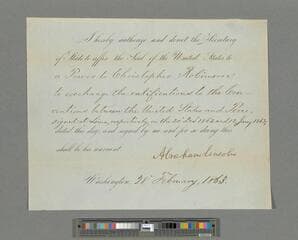 I hereby authorize and direct the Secretary
of State to affix the Seal of the United States to
a Power to Christopher Robinson
to exchange the ratifications to the Con-
ventions between the United States and Peru,
signed at Lima, respectively on the 20 Dec 1862 and 12 Jany 1863,
dated this day, and signed by me and for so doing this
shall be his warrant.
Abraham Lincoln
Washington, February, 1863.